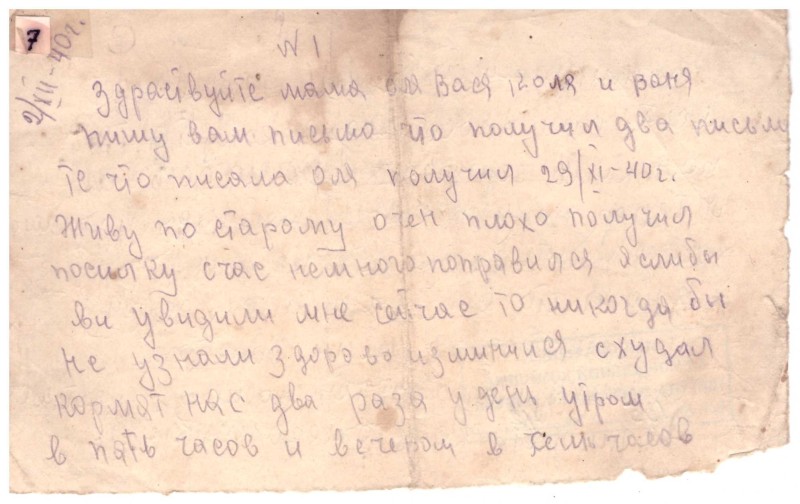 7
2/XII-40г.
N 1
Здраствуйте мама оля Вася Коля и Ваня
пишу вам письмо что получил два письма
те что писала оля получил 29/XI-40г.
Живу по старому очен плохо получил
посилку счас немного поправился яслибы
ви увидили мне сейчас то никогда бы
не узнали здорово изминился схудал
кормат нас два раза у день утром
в пять часов и вечером в семь часов